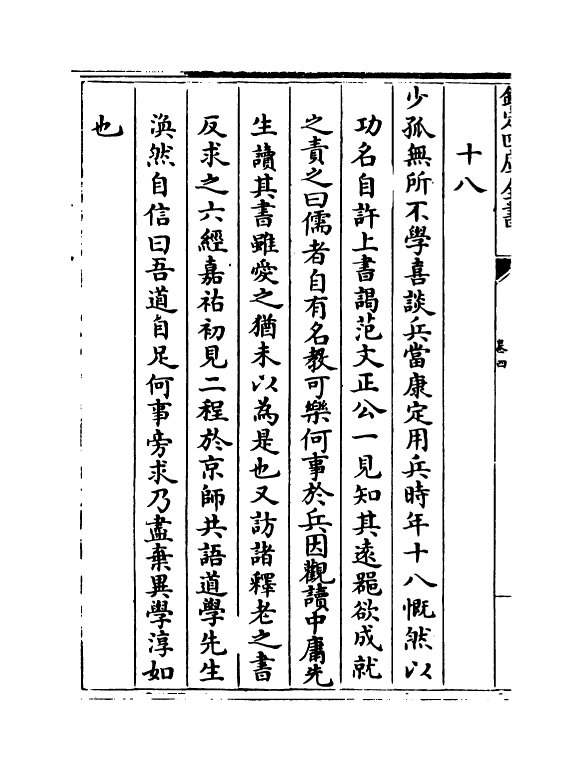 欽定四庫全書
卷四
十八
少孤無所不學喜談兵當康定用兵時年十八慨然以
功名自許上書謁范文正公一見知其遠噐欲成就
之責之曰儒者自有名教可樂何事於兵因觀讀中庸先
生讀其書雖愛之猶未以為是也又訪諸釋老之書
反求之六經嘉祐初見二程於京師共語道學先生
渙然自信曰吾道自足何事旁求乃盡棄異學淳如
也